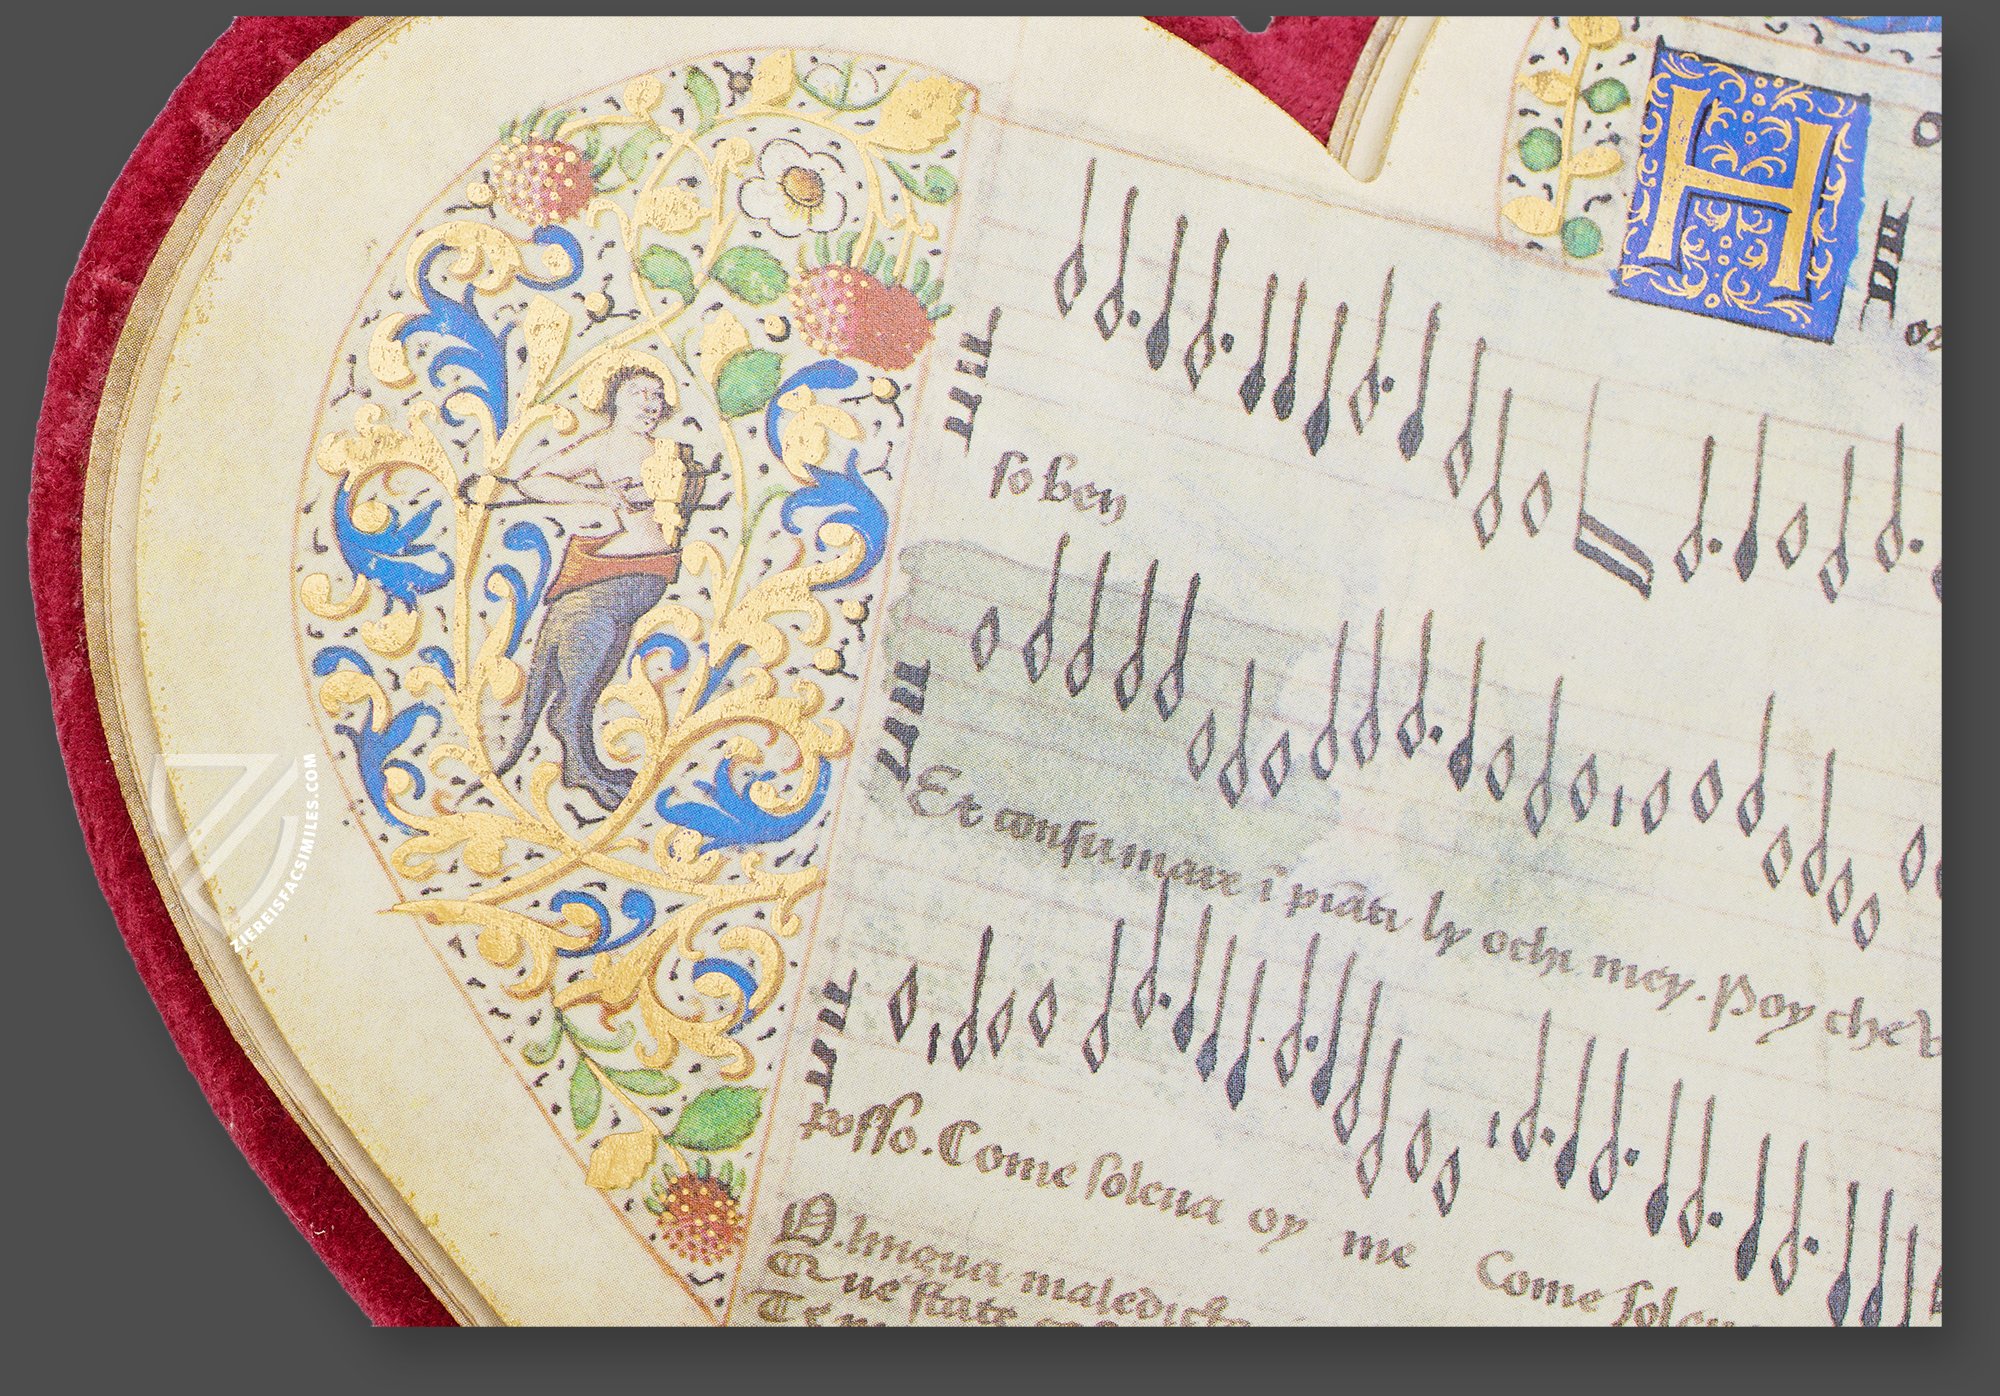 H
so ben
Et consumare ĩ piãti ly ochi mey. Poy che
posso. Come soleua oy me Come soleu
O. lingua maledicta
Que state
ZIEREISFACSIMILES.COM